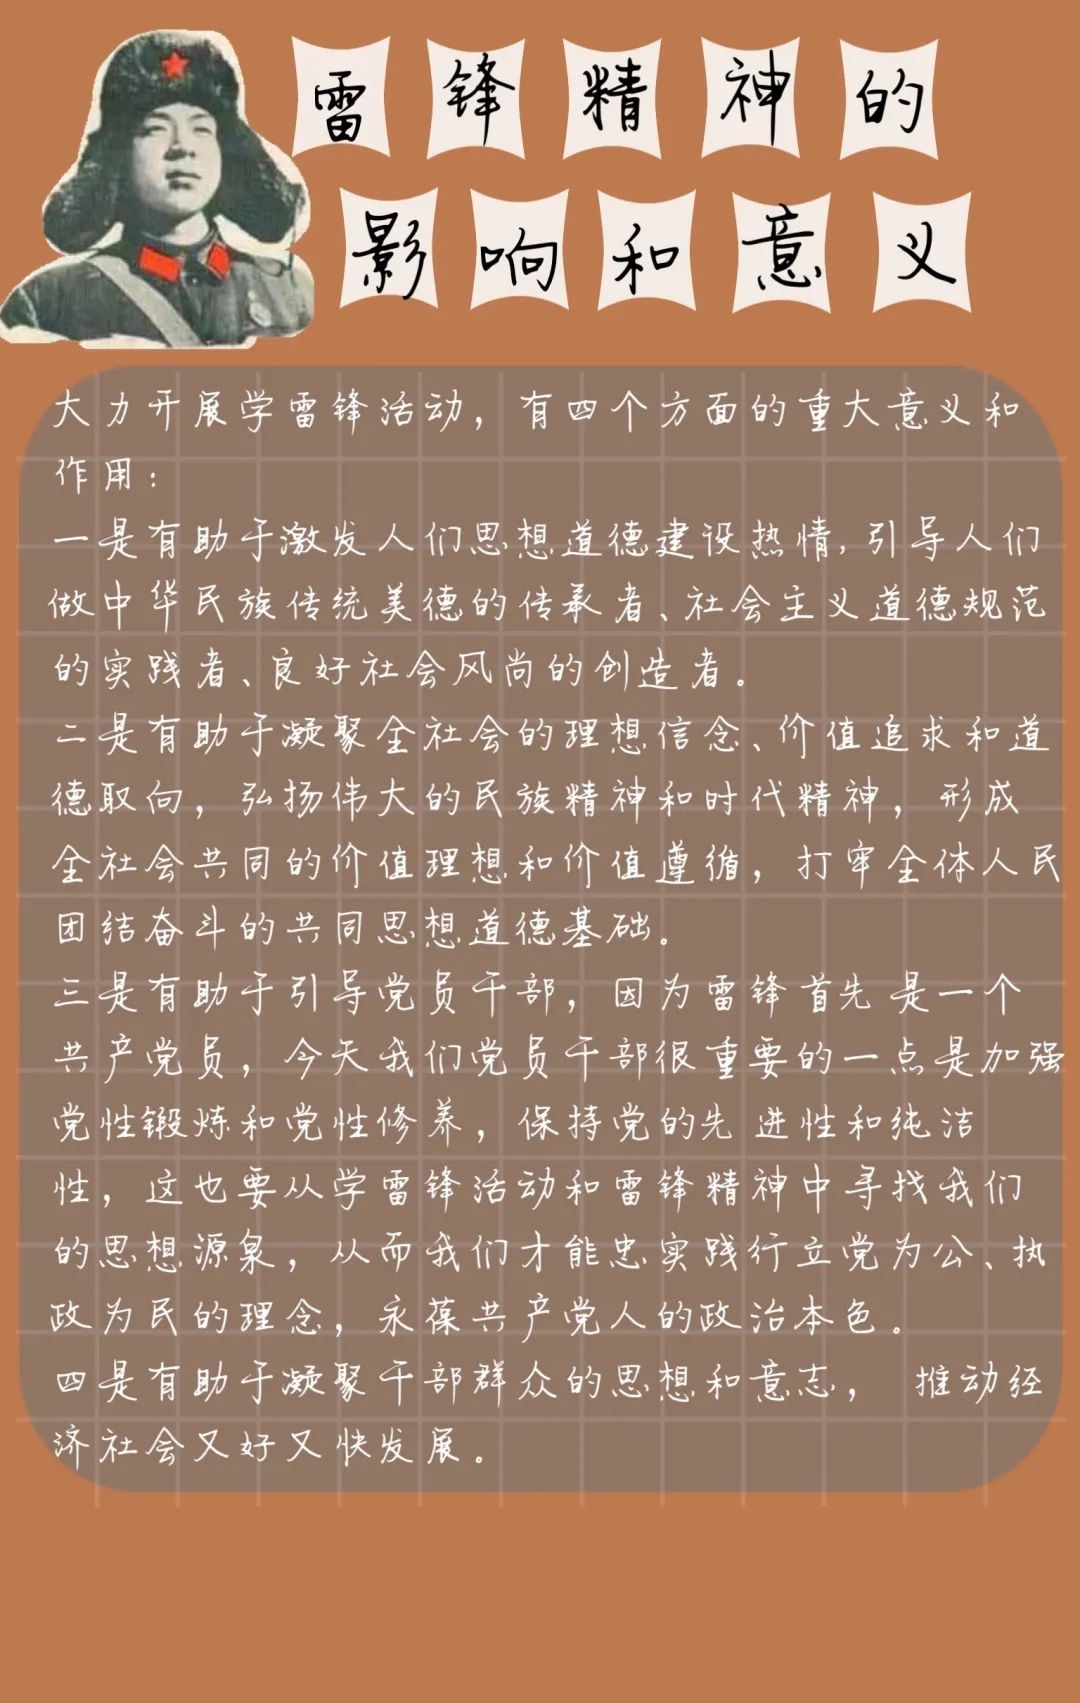 雷锋精神的
影响和意义
大力开展学雷锋活动，有四个方面的重大意义和
作用：
一是有助于激发人们思想道德建设热情，引导人们
做中华民族传统美德的传承者、社会主义道德规范
的实践者、良好社会风尚的创造者。
二是有助于凝聚全社会的理想信念、价值追求和道
德取向，弘扬伟大的民族精神和时代精神，形成
全社会共同的价值理想和价值遵循，打牢全体人民
团结奋斗的共同思想道德基础。
三是有助于引导党员干部，因为雷锋首先是一个
共产党员，今天我们党员干部很重要的一点是加强
党性锻炼和党性修养，保持党的先进性和纯洁
性，这也要从学雷锋活动和雷锋精神中寻找我们
的思想源泉，从而我们才能忠实践行立党为公、执
政为民的理念，永葆共产党人的政治本色。
四是有助于凝聚干部群众的思想和意志，推动经
济社会又好又快发展。